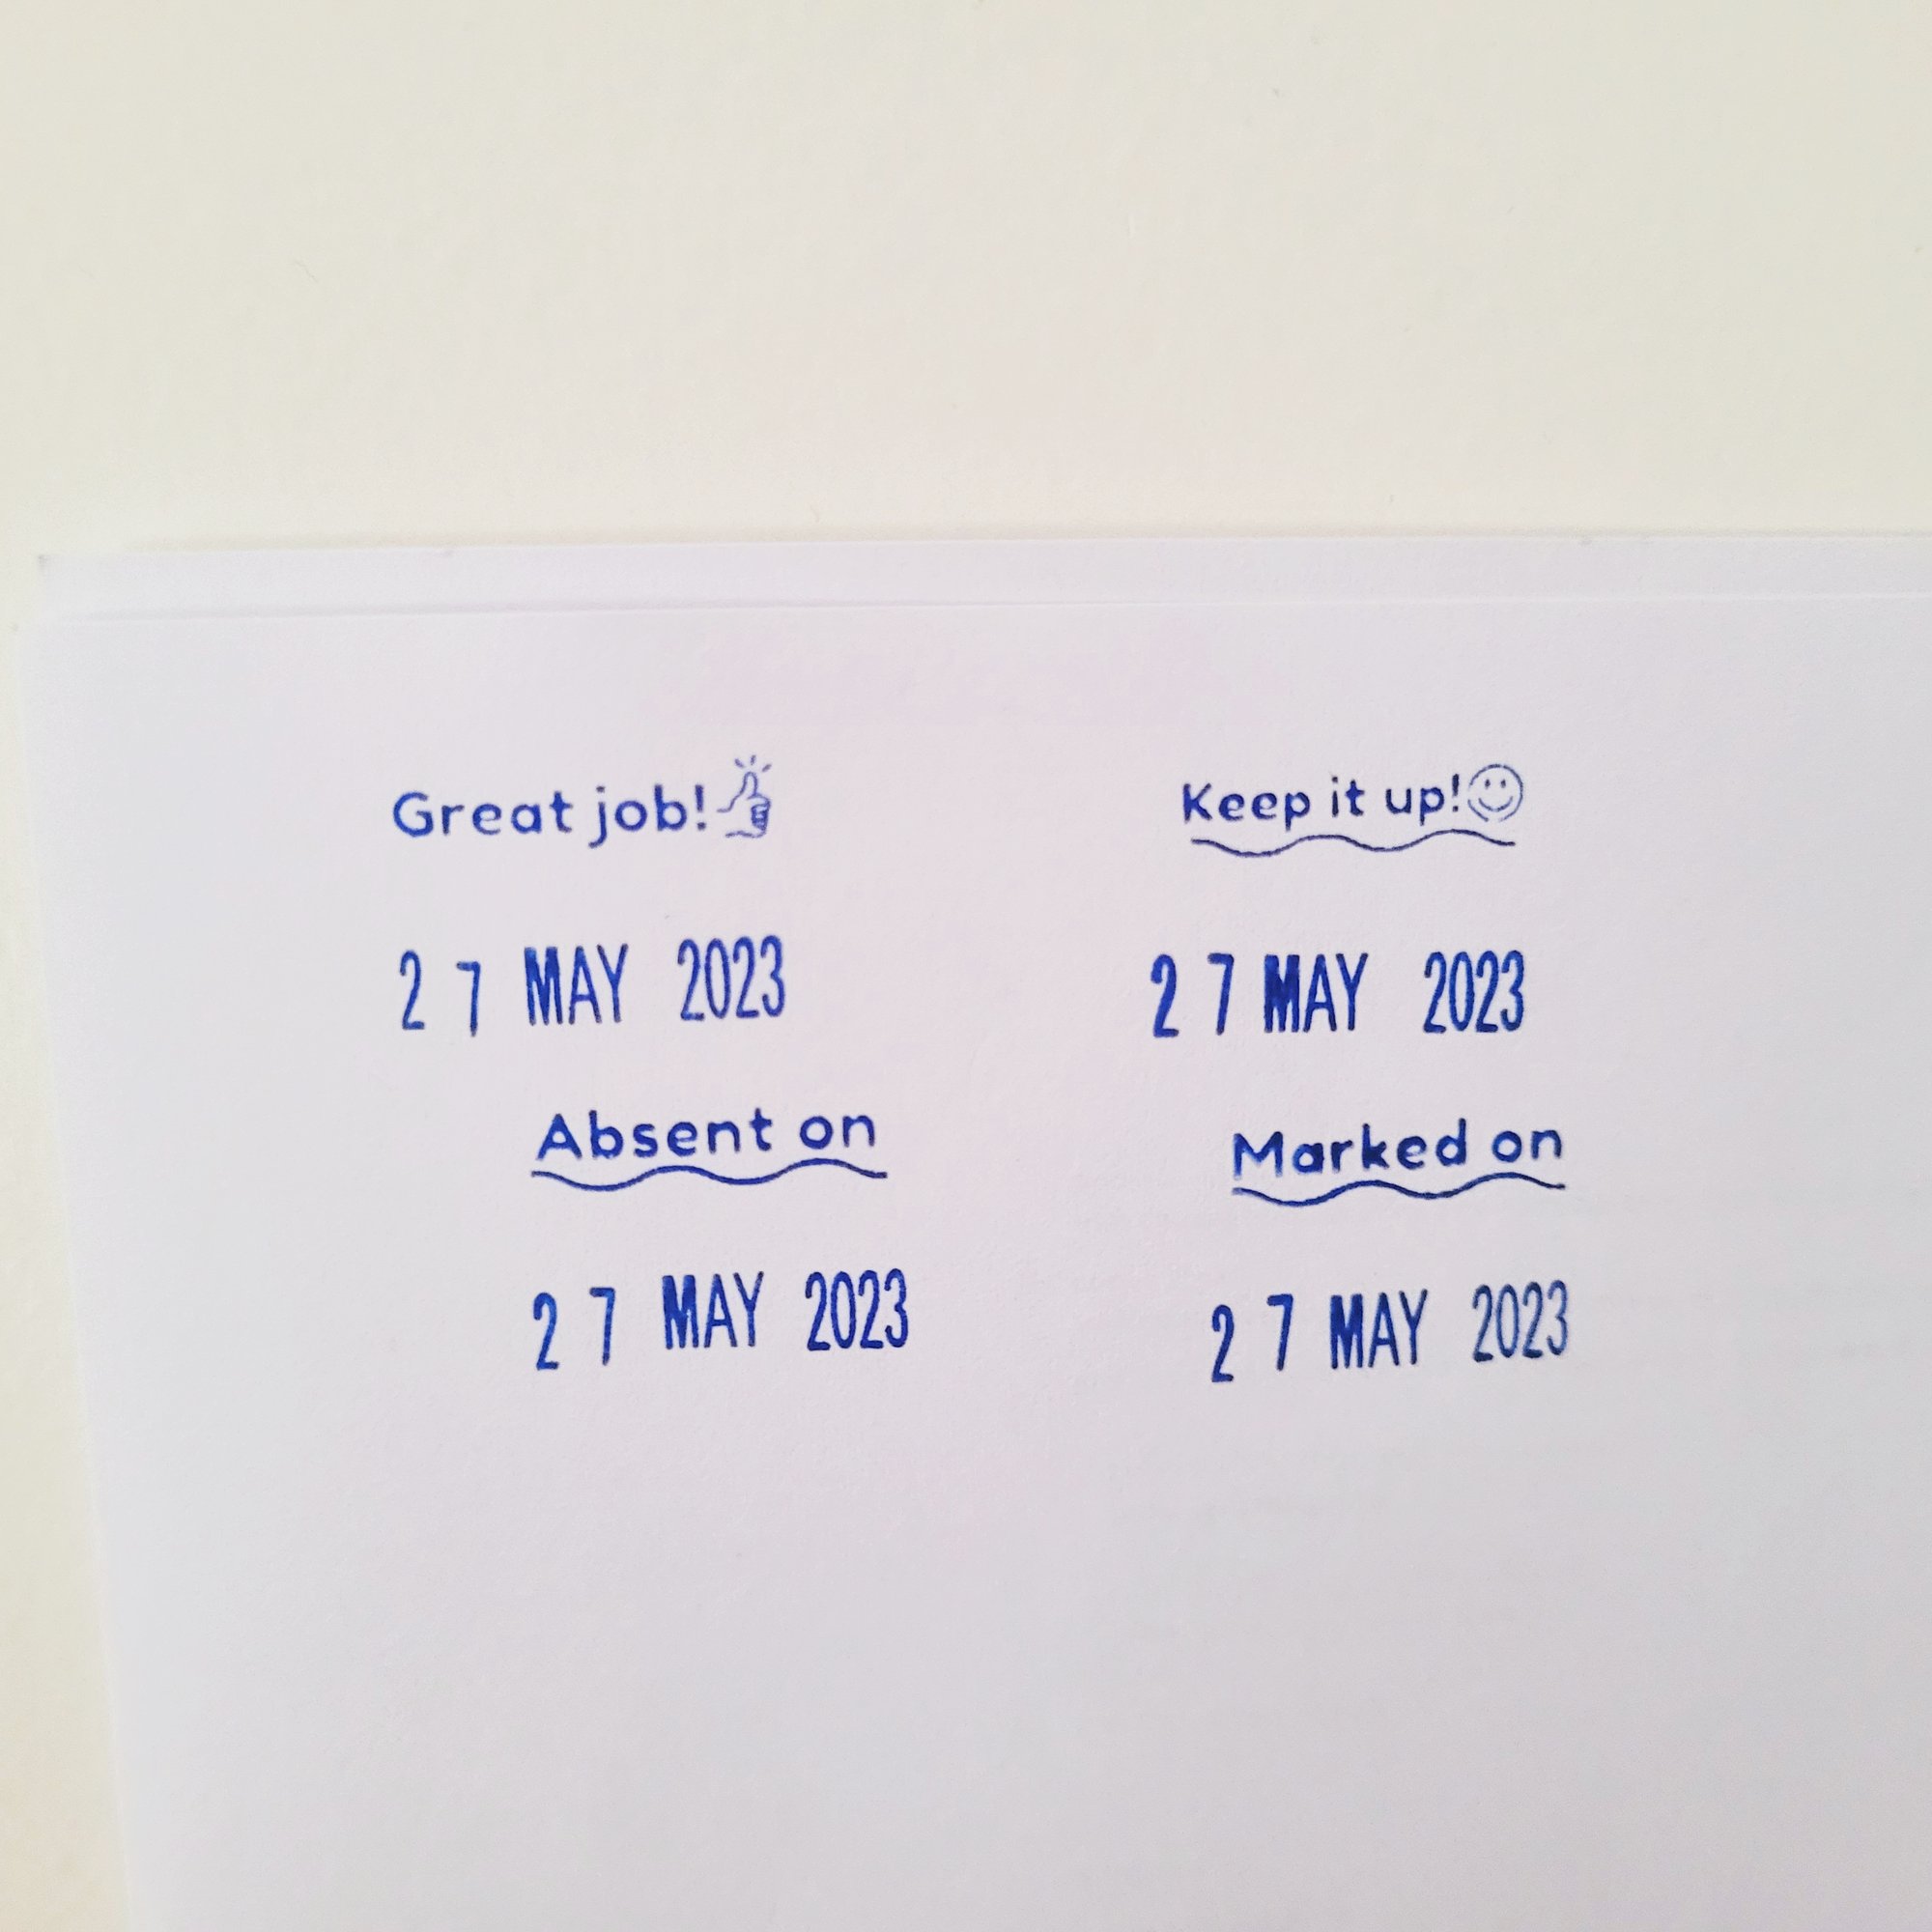 Great job!
27 MAY 2023
Keep it up!
27 MAY 2023
Absent on
27 MAY 2023
Marked on
27 MAY 2023